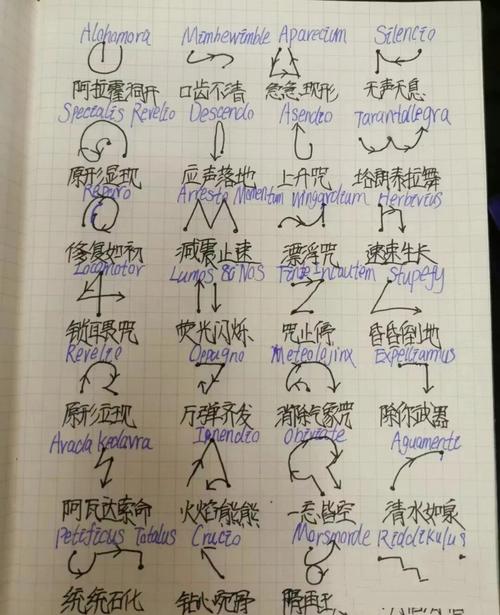 Alohamora Mimbewimble Aparecium Silencio
阿拉霍洞开 口齿不清 急急现形 无声无息
Specialis Revelio Descendo Asendio Tarantallegra
原形显现 应声落地 上升咒 塔朗泰拉舞
Reparo Arresto Momentum Wingardium Herbivius
修复如初 减震止速 漂浮咒 速速生长
Locomotor Lumos & Nos Finite Incautem Stupefy
锁耳聂咒 荧光闪烁 咒止停 昏昏倒地
Revelio Oppugno Meteolojinx Expelliarmus
原形立现 万弹齐发 消除气象咒 除你武器
Avada Kedavra Incendio Obliviate Aguamenti
阿瓦达索命 火焰熊熊 一忘皆空 清水如泉
Petificus Totalus Crucio Morsmorde Riddikulus
统统石化 钻心宛骨